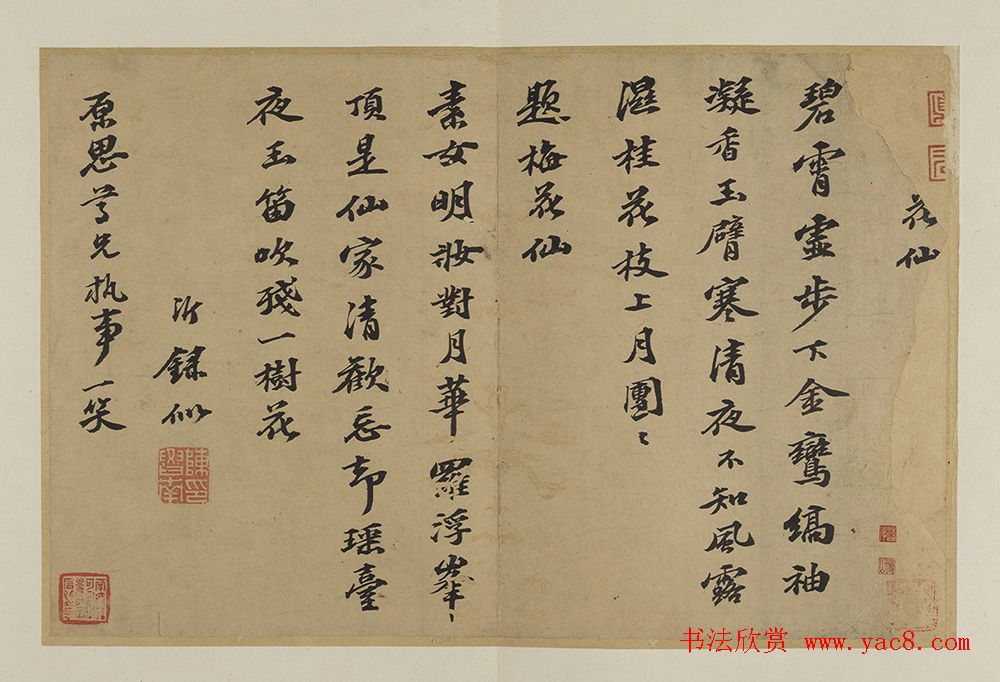 花仙
碧霄靈步下金鸞縞袖
凝香玉臂寒清夜不知風露
濕桂花枝上月團〻
題梅花仙
素女明妝對月華羅浮峯
頂是仙家清歡忘却瑤臺
夜玉笛吹殘一樹花
沂錄似
原思尊兄執事一笑
书法欣赏 www.yac8.com